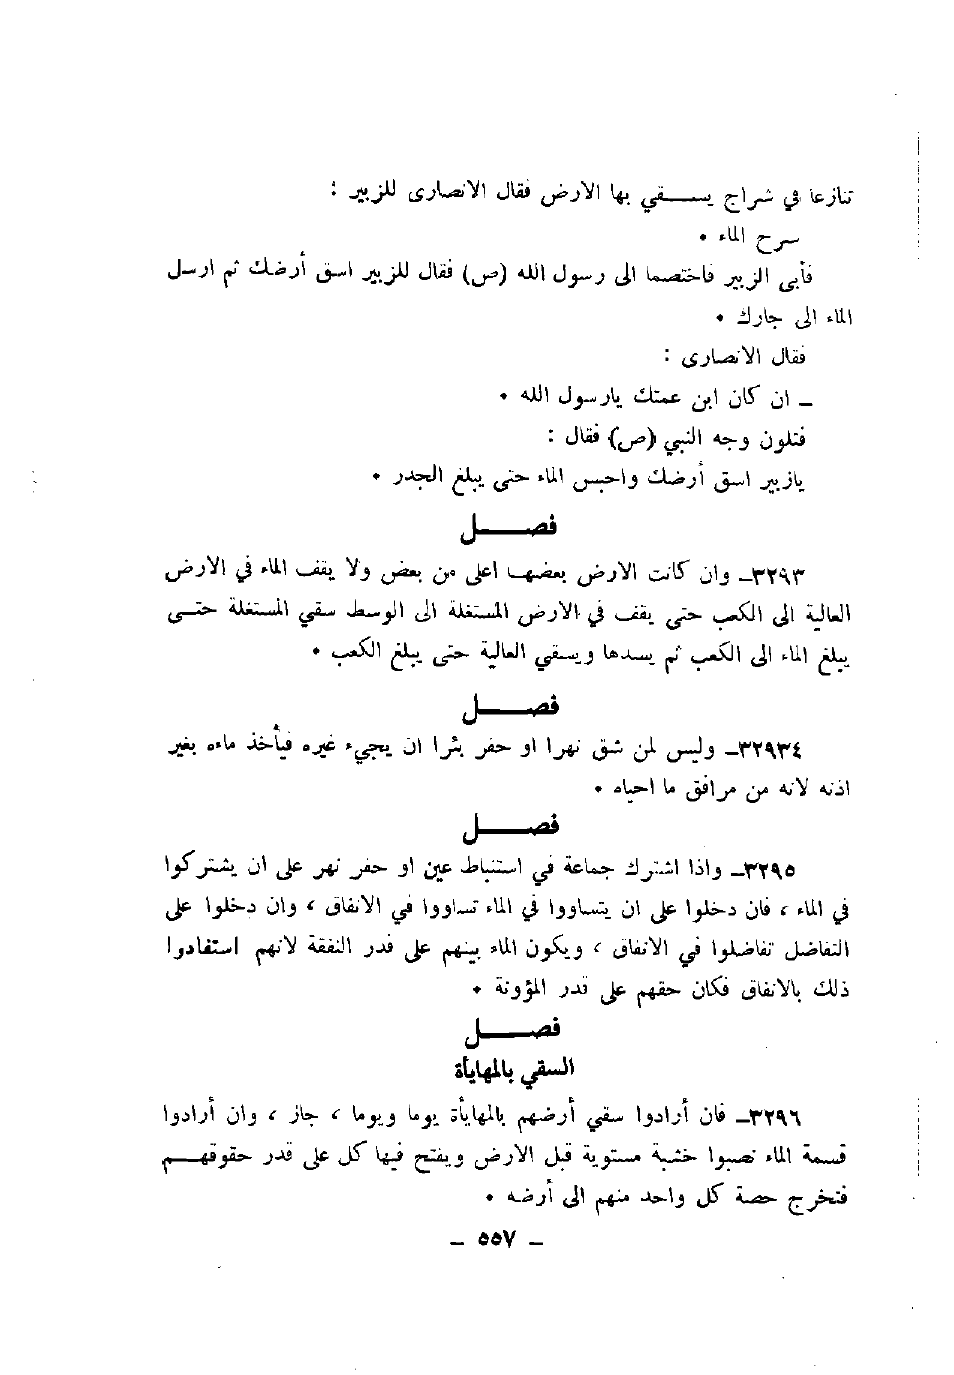 تنازعا في شراج يســـقي بها الارض فقال الانصارى للزبير :
سرح الماء •
فأبى الزبير فاختصما الى رسول الله (ص) فقال للزبير اسق أرضك ثم ارسل
الماء الى جارك •
فقال الانصارى :
ـ ان كان ابن عمتك يارسول الله •
فتلون وجه النبي (ص) فقال :
يازبير اسق أرضك واحبس الماء حتى يبلغ الجدر •
فصـــــل
٣٢٩٣ـ وان كانت الارض بعضهـا اعلى من بعض ولا يقف الماء في الارض
العالية الى الكعب حتى يقف في الارض المستفلة الى الوسط سقي المستفلة حتـى
يبلغ الماء الى الكعب ثم يسدها ويسقي العالية حتى يبلغ الكعب •
فصـــــل
٣٢٩٣٤ـ وليس لمن شق نهرا او حفر بئرا ان يجيء غيره فيأخذ ماءه بغير
اذنه لانه من مرافق ما احياه •
فصـــــل
٣٢٩٥ـ واذا اشترك جماعة في استنباط عين او حفر نهر على ان يشتركوا
في الماء ، فان دخلوا على ان يتساووا في الماء تساووا في الانفاق ، وان دخلوا على
التفاضل تفاضلوا في الانفاق ، ويكون الماء بينهم على قدر النفقة لانهم استفادوا
ذلك بالانفاق فكان حقهم على قدر المؤونة •
فصـــــل
السقي بالمهايأة
٣٢٩٦ـ فان أرادوا سقي أرضهم بالمهايأة يوما ويوما ، جاز ، وان أرادوا
قسمة الماء نصبوا خشبة مستوية قبل الارض ويفتح فيها كل على قدر حقوقهـــم
فتخرج حصة كل واحد منهم الى أرضه •
ـ ٥٥٧ ـ